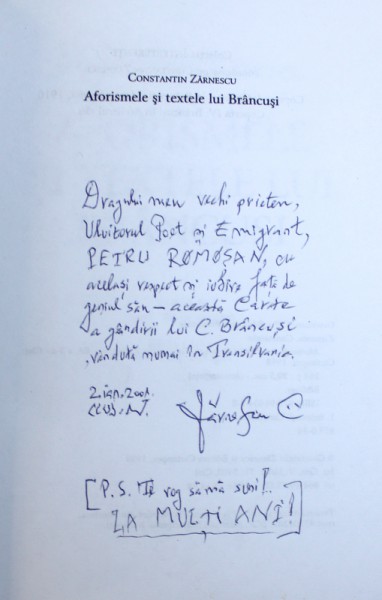 CONSTANTIN ZĂRNESCU
Aforismele și textele lui Brâncuși
Dragului meu vechi prieten,
Uluitorul Poet și Emigrant,
PETRU ROMOȘAN, cu
același respect și iubire față de
geniul său – această Carte
a gândirii lui C. Brâncuși
, vândută numai în Transilvania.
2.ian.2001.
CLUJ.N.
[P.S. Te rog să mă suni!..
LA MULȚI ANI!]